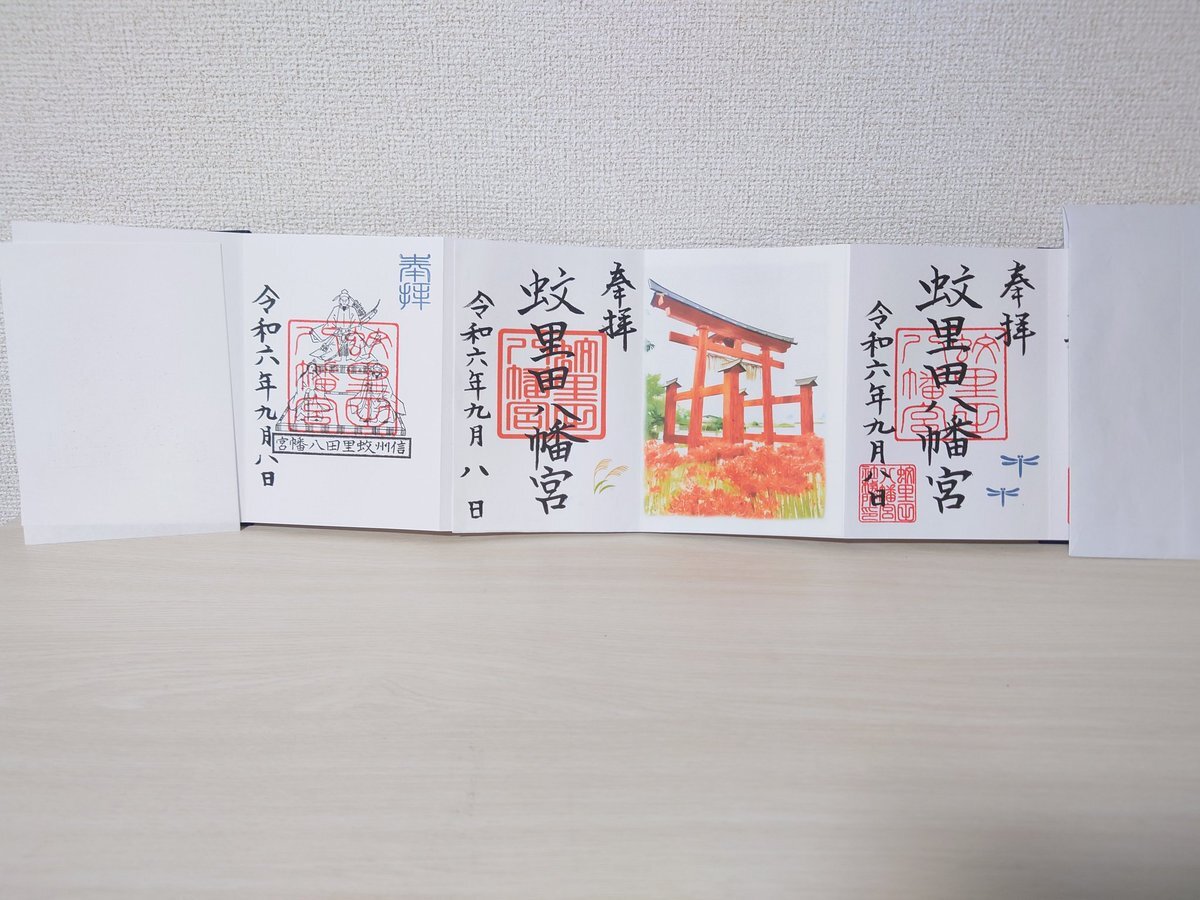 奉拝
蚊里田八幡宮
蚊里田八幡宮
令和六年九月八日
奉拝
蚊里田八幡宮
蚊里田八幡宮
令和六年九月八日
奉拝
蚊里田八幡宮
信州蚊里田八幡宮
令和六年九月八日